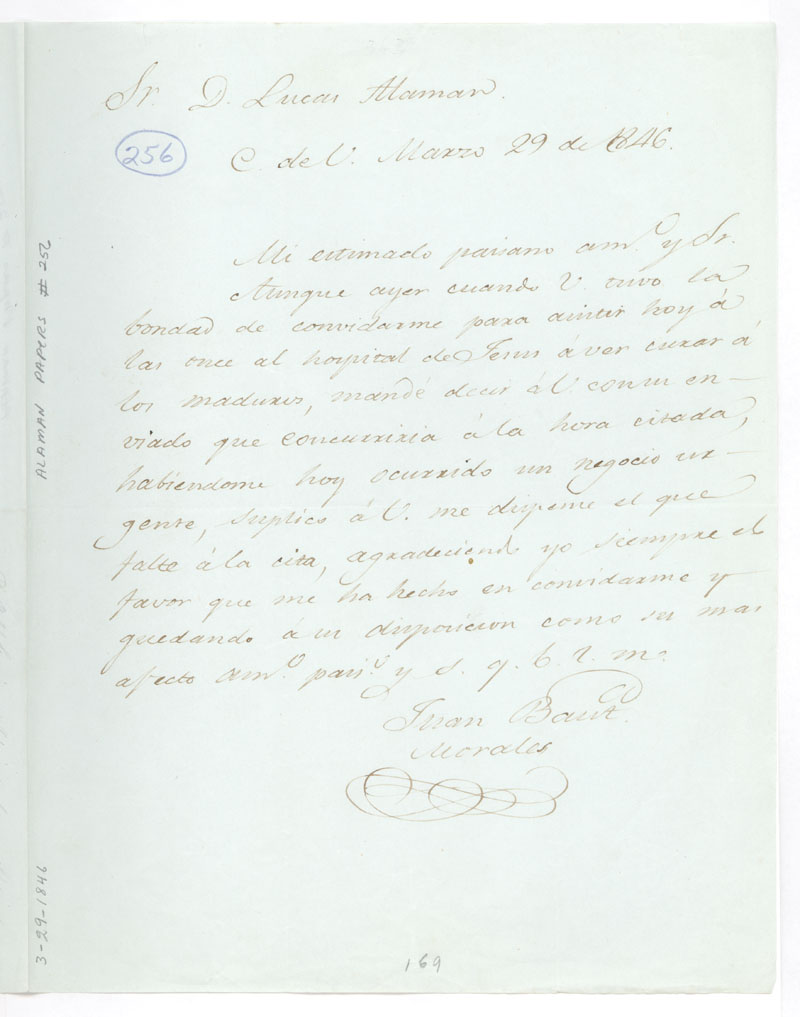 Sr. D. Lucas Alaman.
256
C. de V. Marzo 29 de 1846.
Mi estimado paisano amº. y Sr.
Aunque ayer cuando V. tuvo la
bondad de convidarme para asistir hoy á
las once al hospital de Jesus á ver curar á
los maduros, mandé decir á V. con su en-
viado que concurriria á la hora citada,
habiendome hoy ocurrido un negocio ur-
gente, suplico á V. me dispense el que
falte á la cita, agradeciendo yo siempre el
favor que me ha hecho en convidarme y
quedando á su disposicion como su mas
afecto amº. paisº. y s. q. b. s. m.
Juan Baut.ª
Morales
ALAMAN PAPERS # 256
3-29-1846
169